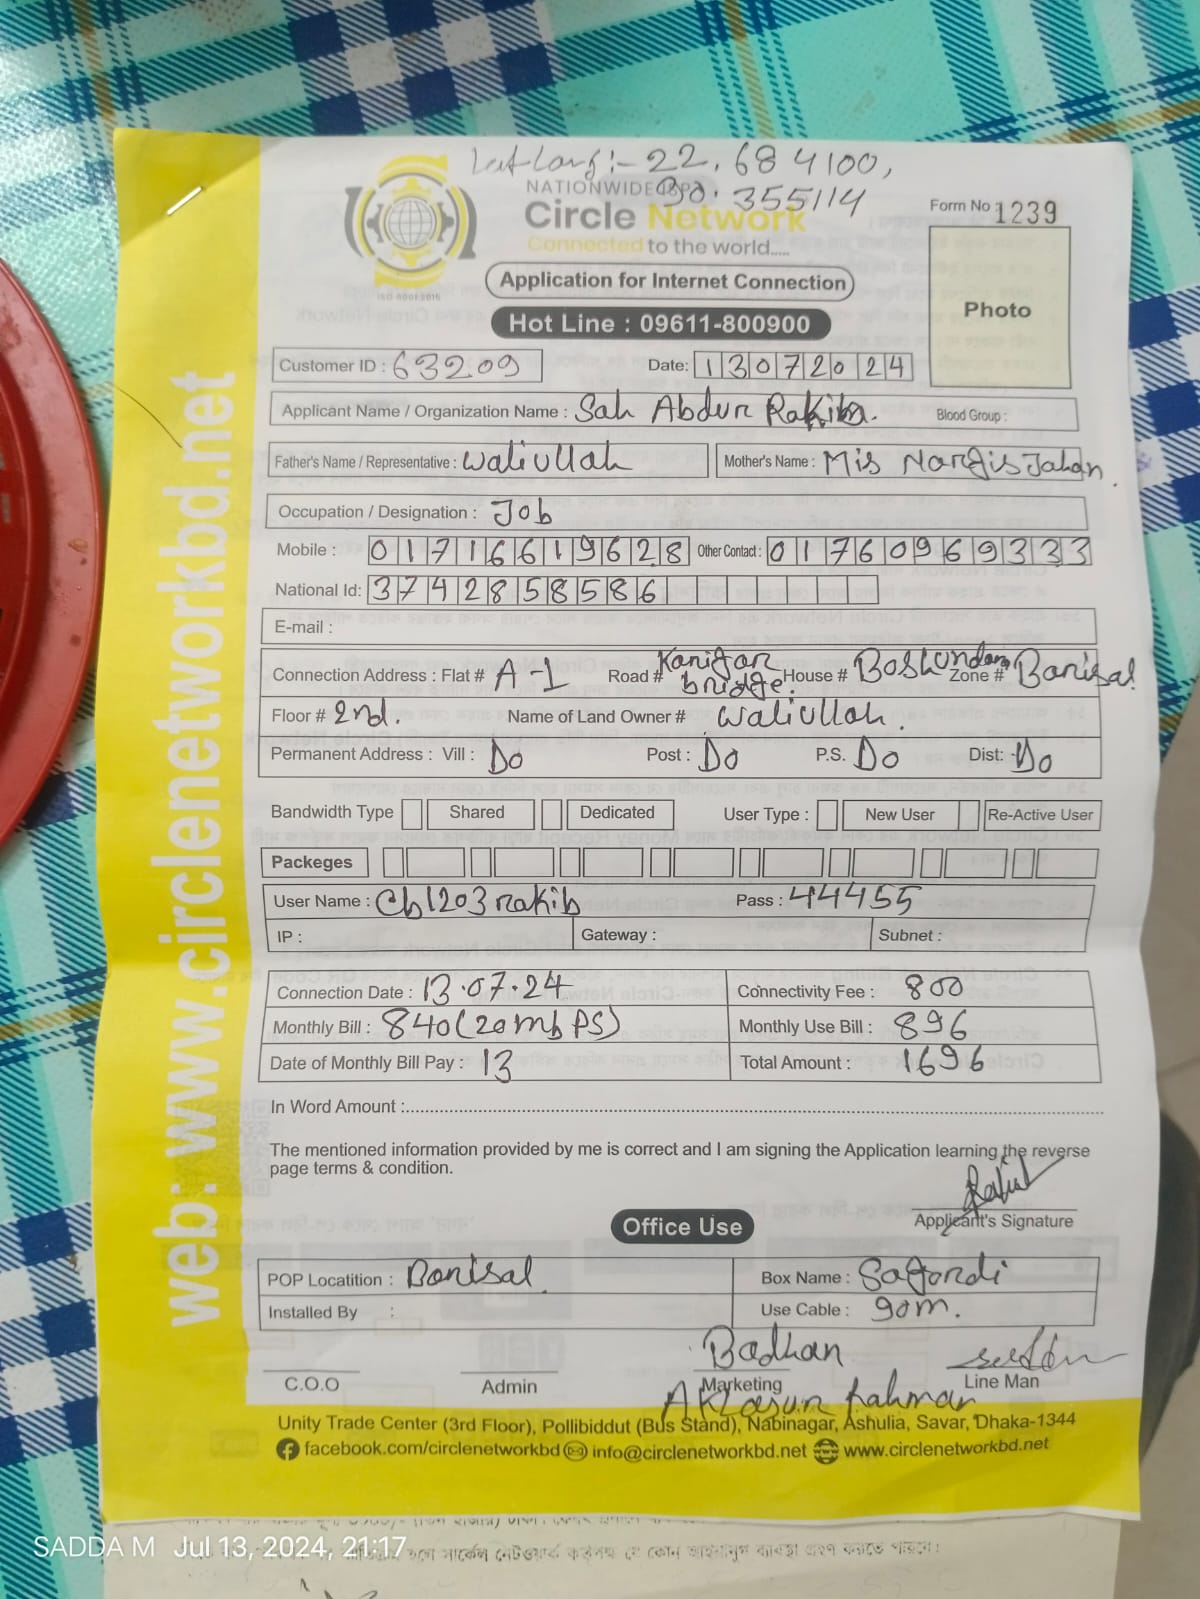 Lat Long :- 22.684100,
90.355114
NATIONWIDE ISP
Circle Network
Connected to the world.....
ISO 9001:2015
Form No 1239
Photo
Application for Internet Connection
Hot Line : 09611-800900
Customer ID : 63209 Date: 13072024
Applicant Name / Organization Name : Sah Abdur Rakib. Blood Group :
Father's Name / Representative : Waliullah Mother's Name : Mis Nargis Jahan.
Occupation / Designation : Job
Mobile : 01716619628 Other Contact : 01760969333
National Id: 3742858586
E-mail :
Connection Address : Flat # A-1 Road # Kanigar bridge. House # Boshundara Zone # Barisal
Floor # 2nd. Name of Land Owner # Waliullah.
Permanent Address : Vill : Do Post : Do P.S. Do Dist: Do
Bandwidth Type Shared Dedicated User Type : New User Re-Active User
Packeges
User Name : Cb1203rakib Pass : 44455
IP : Gateway : Subnet :
Connection Date : 13.07.24 Connectivity Fee : 800
Monthly Bill : 840(20mbPS) Monthly Use Bill : 896
Date of Monthly Bill Pay : 13 Total Amount : 1696
In Word Amount :
The mentioned information provided by me is correct and I am signing the Application learning the reverse
page terms & condition.
Rakib
Applicant's Signature
Office Use
POP Locatition : Barisal. Box Name : Sagordi
Installed By : Use Cable : 90m.
Badhan
C.O.O Admin Marketing Line Man
Rahman
Unity Trade Center (3rd Floor), Pollibiddut (Bus Stand), Nabinagar, Ashulia, Savar, Dhaka-1344
facebook.com/circlenetworkbd info@circlenetworkbd.net www.circlenetworkbd.net
web: www.circlenetworkbd.net
SADDA M Jul 13, 2024, 21:17